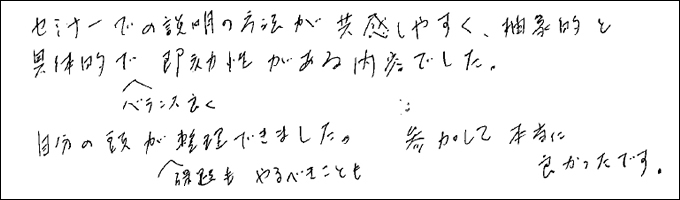 セミナーでの説明の方法が共感しやすく、抽象的と
具体的で即効性がある内容でした。
バランス良く
自分の頭が整理できました。 参加して本当に
課題も やるべきことも 良かったです。